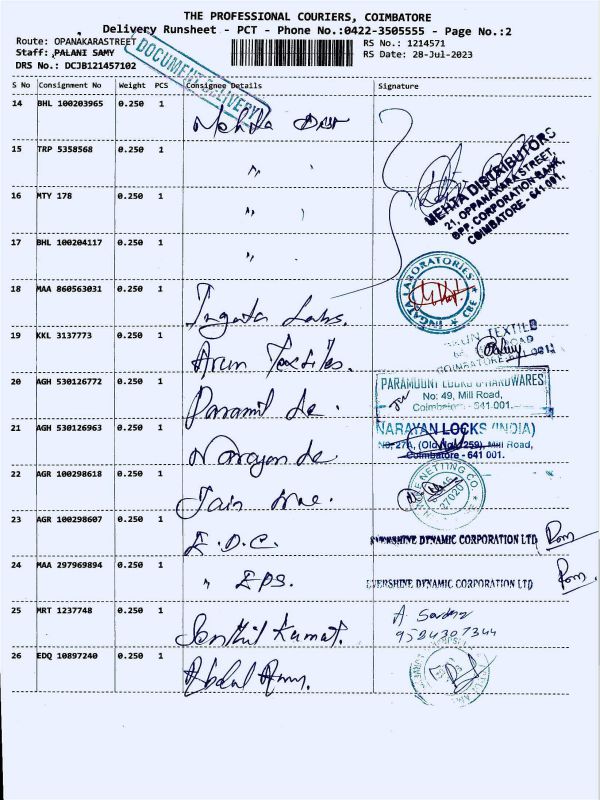 THE PROFESSIONAL COURIERS, COIMBATORE
Delivery Runsheet - PCT - Phone No.:0422-3505555 - Page No.:2
Route: OPANAKARASTREET
RS No.: 1214571
Staff: PALANI SAMY
RS Date: 28-Jul-2023
DRS No.: DCJB121457102
DOCUMENT DELIVERY
S No Consignment No Weight PCS Consignee Details Signature
14 BHL 100203965 0.250 1
15 TRP 5358568 0.250 1 "
MEHTA DISTRIBUTORS
21, OPPANAKARA STREET,
OPP. CORPORATION BANK,
COIMBATORE - 641 001.
16 MTY 178 0.250 1 "
17 BHL 100204117 0.250 1 "
18 MAA 860563031 0.250 1 Ingata Labs.
INGATA LABORATORIES CBE
19 KKL 3137773 0.250 1 Arun Textiles.
ARUN TEXTILE
ROAD
COIMBATORE
20 AGH 530126772 0.250 1
PARAMOUNT LOCKS & HARDWARES
No: 49, Mill Road,
Coimbatore - 641 001.
21 AGH 530126963 0.250 1 Narayan
NARAYAN LOCKS (INDIA)
No. 27A, (Old No. 259), Mill Road,
Coimbatore - 641 001.
22 AGR 100298618 0.250 1 Jain
NETTING CO
23 AGR 100298607 0.250 1 E.D.C.
EVERSHINE DYNAMIC CORPORATION LTD
24 MAA 297969894 0.250 1 " EPS.
EVERSHINE DYNAMIC CORPORATION LTD
25 MRT 1237748 0.250 1 Senthil Kumar.
9584307344
26 EDQ 10897240 0.250 1 Abdul